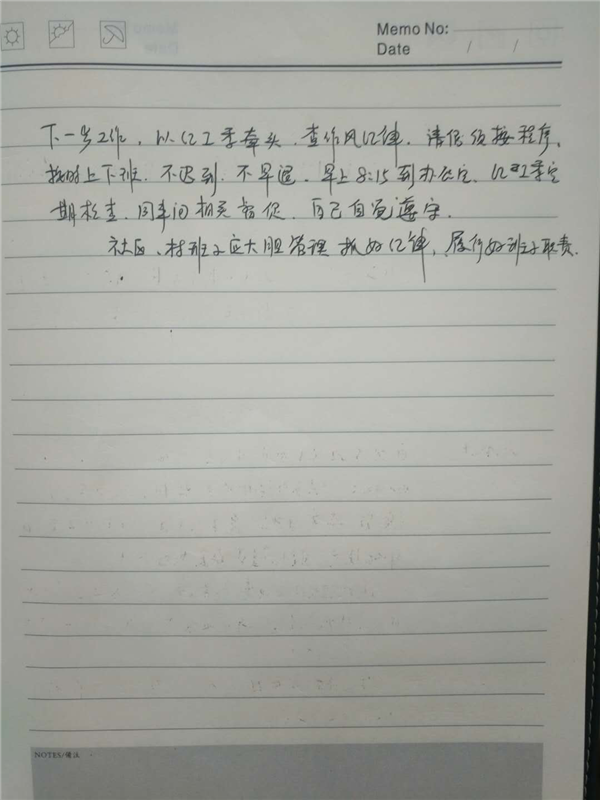 Memo No:
Date / /
下一步工作,以纪工委牵头,查作风纪律,请假须按程序,
按时上下班,不迟到,不早退,早上8:15到办公室,纪工委定
期检查,同事间相互督促,自己自觉遵守.
社区、村班子应大胆管理抓好纪律,履行好班子职责.
NOTES/备注